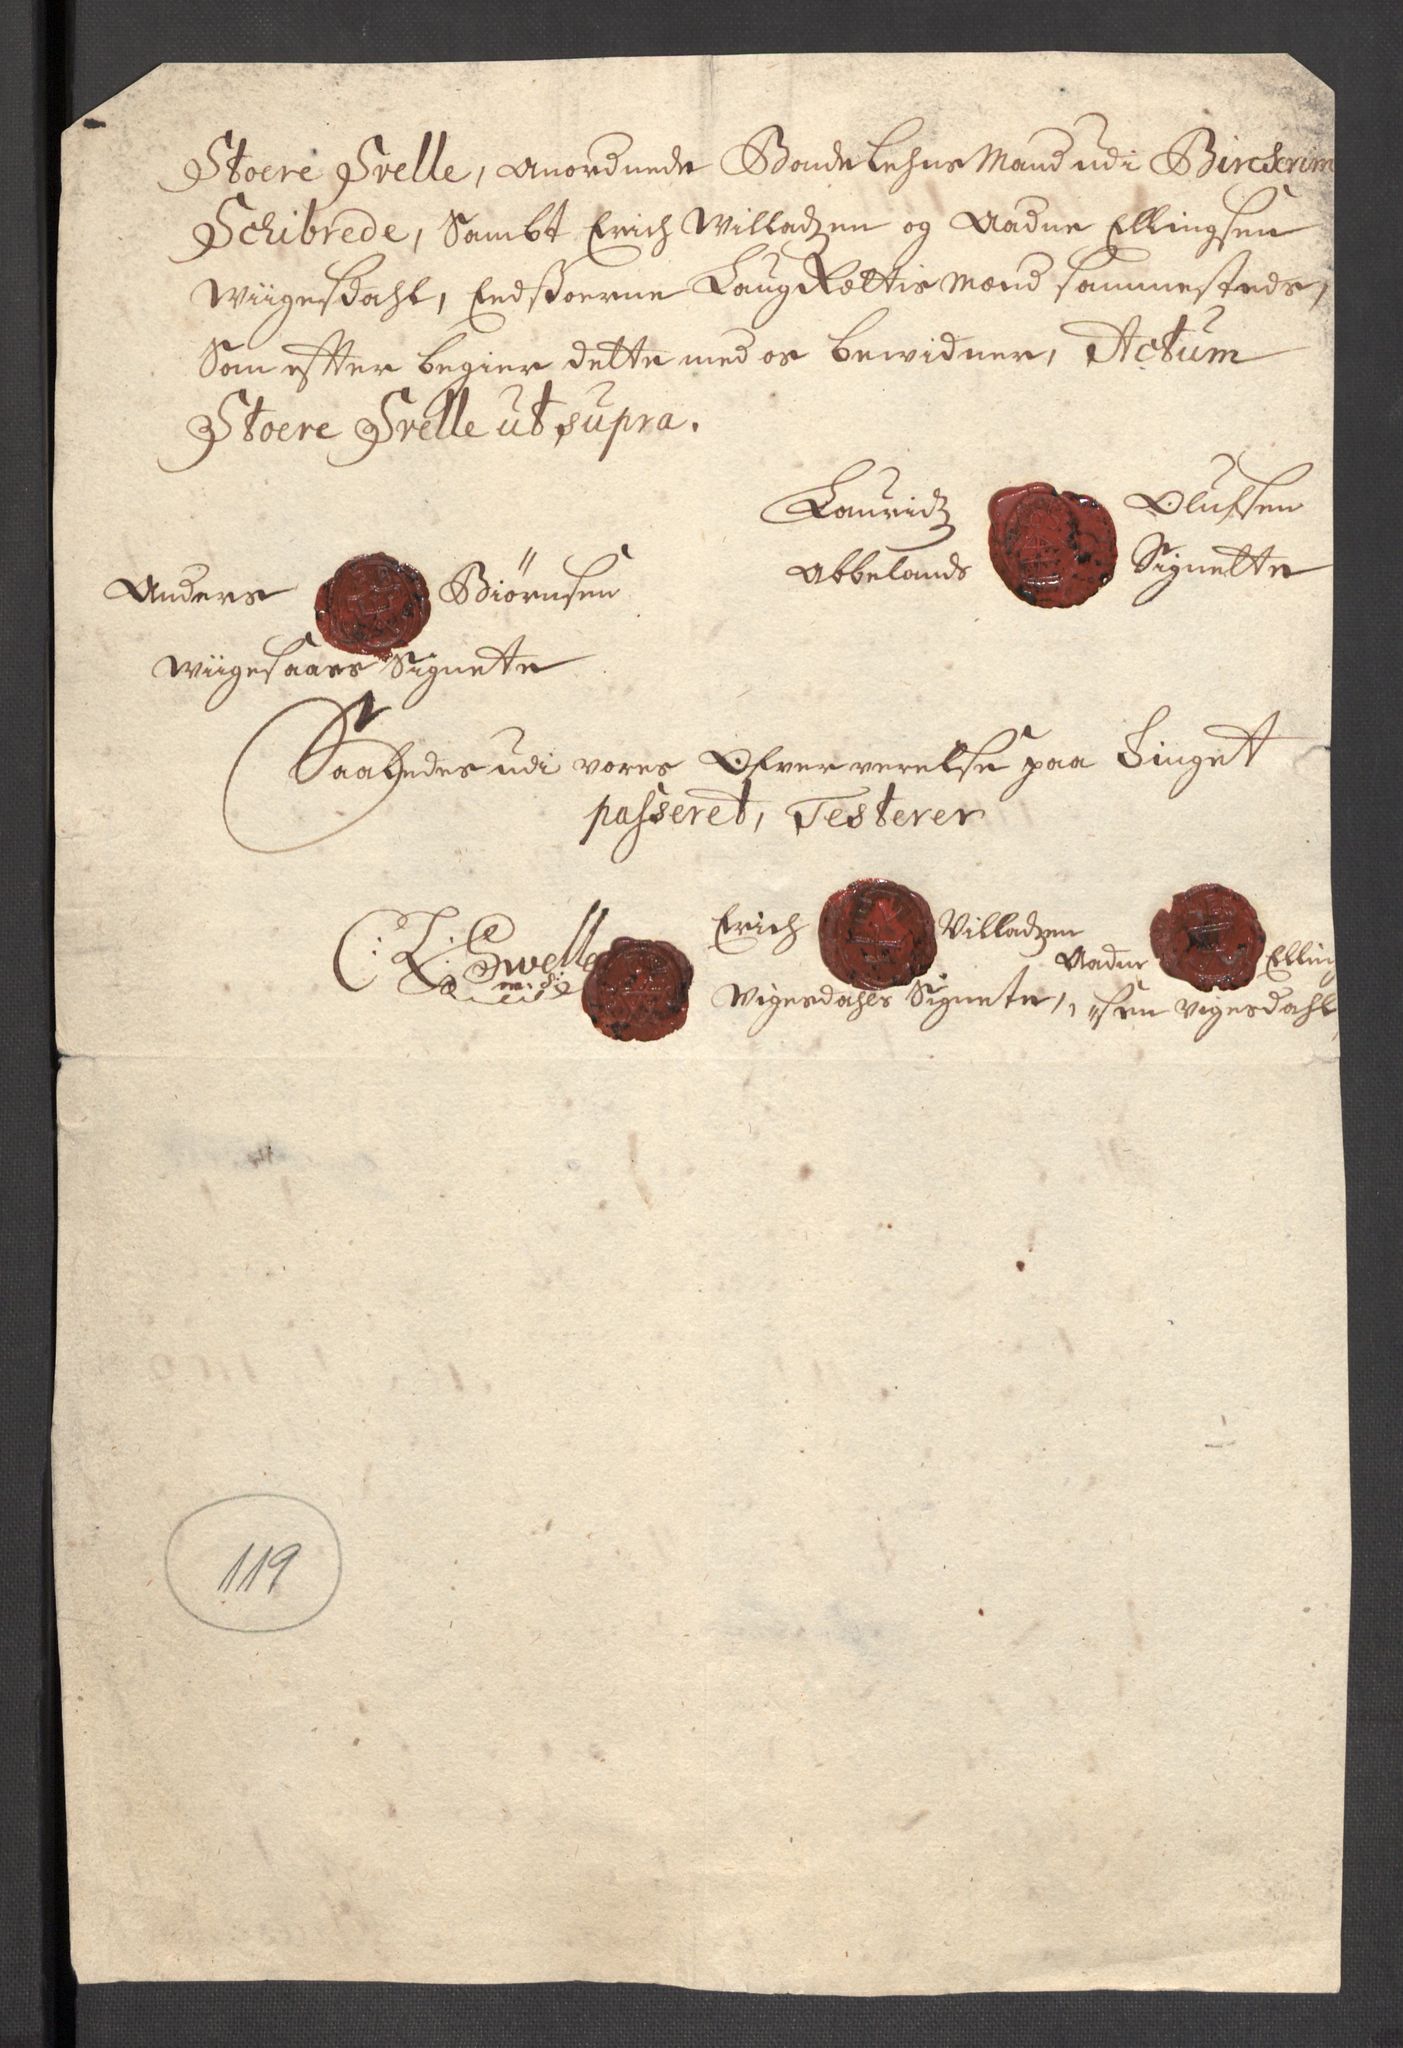 Stoere Svelle, Anordnede Bonde Lehns Mand udi Bircherim
Schibrede, Sambt Erich Willadzen og Aadne Ellingsen
Wiigesdahl, Eedsvoerne Laug Rettis Mænd sammesteds,
Som efter begier dette med os bewidner, Actum
Stoere Svelle ut supra.
Lauridz Olufsen
Abbelands Signette
Anders Biörnsen
Wiigesaaes Signete
Saaledes udi vores Ofververelse paa Tinget
passeret, Testerer
Swelle
Erich Villadzen
Vigesdahls Signete,
Aadne Elling
"sen Vigesdahl
119